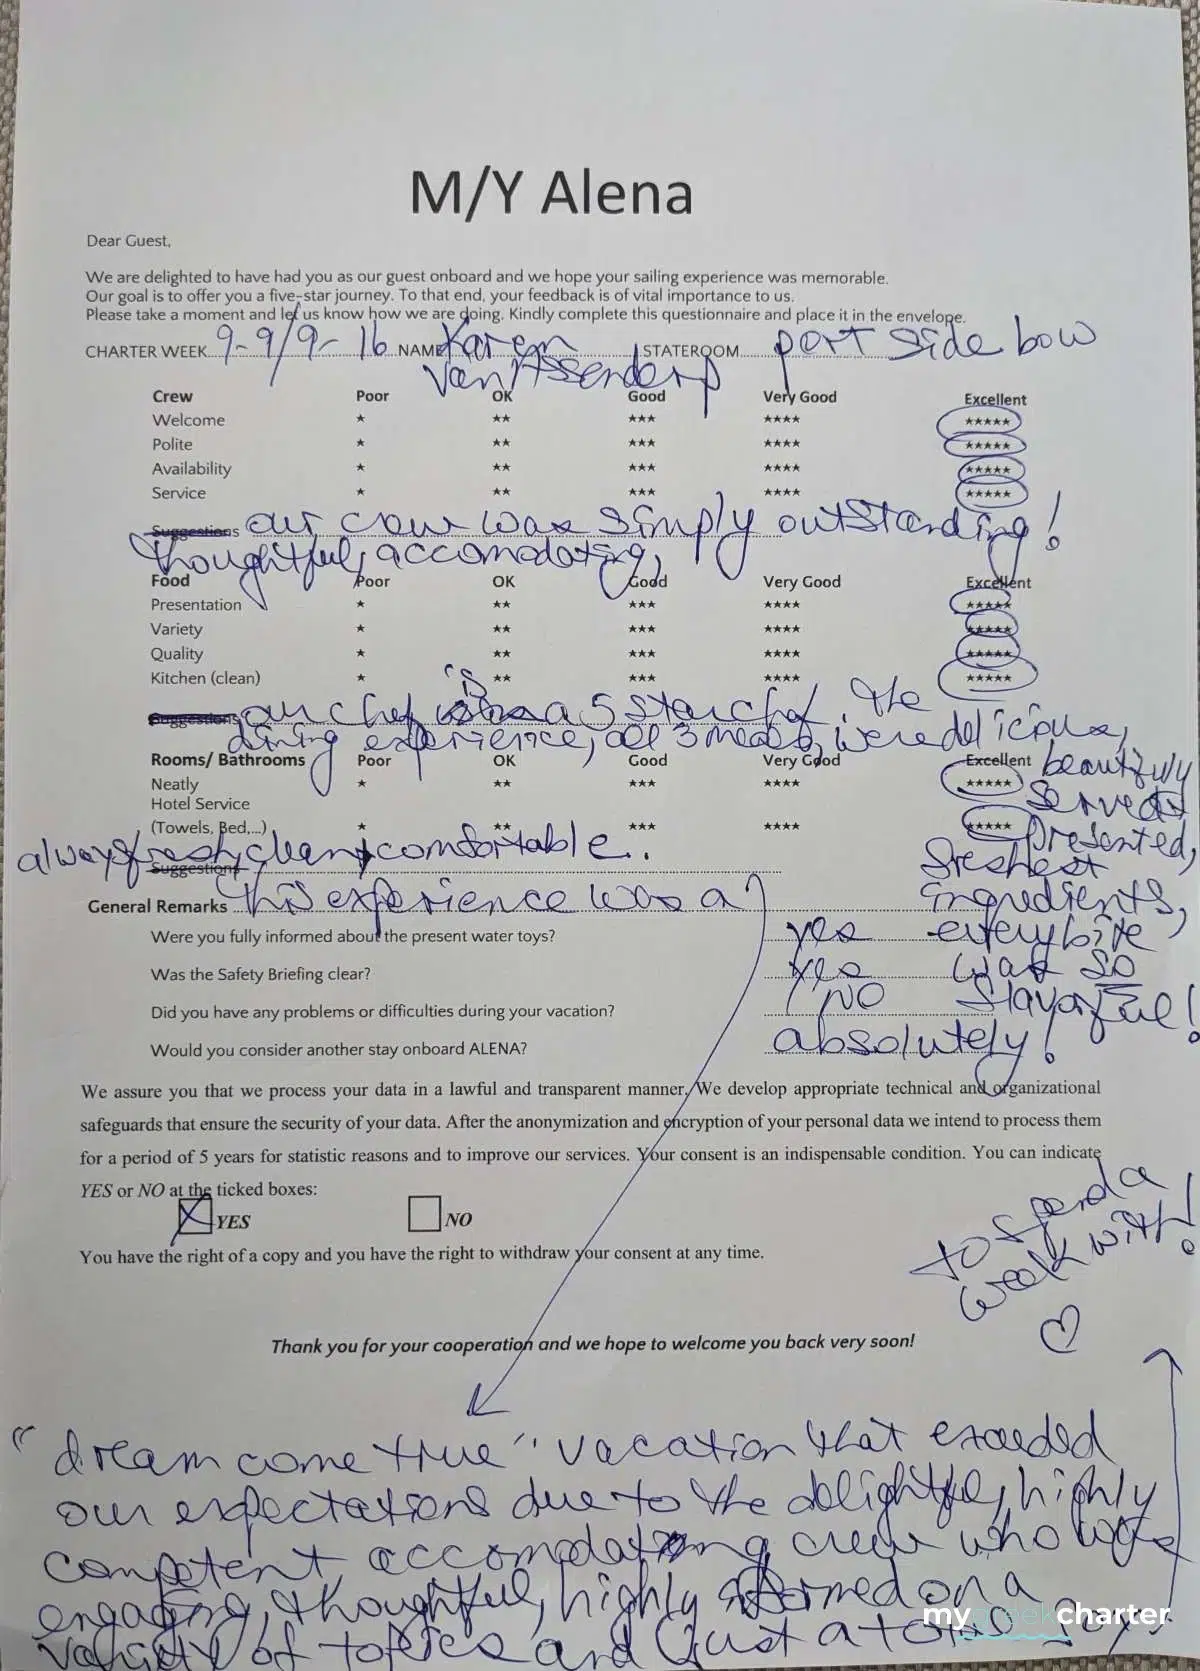 M/Y Alena
Dear Guest,
We are delighted to have had you as our guest onboard and we hope your sailing experience was memorable.
Our goal is to offer you a five-star journey. To that end, your feedback is of vital importance to us.
Please take a moment and let us know how we are doing. Kindly complete this questionnaire and place it in the envelope.
CHARTER WEEK 9-9/9-16 NAME Karen STATEROOM port side bow
Van Assenderp
Crew Poor OK Good Very Good Excellent
Welcome ★ ★★ ★★★ ★★★★ ★★★★★
Polite ★ ★★ ★★★ ★★★★ ★★★★★
Availability ★ ★★ ★★★ ★★★★ ★★★★★
Service ★ ★★ ★★★ ★★★★ ★★★★★
Suggestions our crew was simply outstanding!
thoughtful, accomodating,
Food Poor OK Good Very Good Excellent
Presentation ★ ★★ ★★★ ★★★★ ★★★★★
Variety ★ ★★ ★★★ ★★★★ ★★★★★
Quality ★ ★★ ★★★ ★★★★ ★★★★★
Kitchen (clean) ★ ★★ ★★★ ★★★★ ★★★★★
Suggestions our chef is a 5 star chef. The
dining experience, all 3 meals, were delicious,
beautifully
served,
presented,
freshest
ingredients,
every bite
was so
flavorful!
Rooms/ Bathrooms Poor OK Good Very Good Excellent
Neatly ★ ★★ ★★★ ★★★★ ★★★★★
Hotel Service
(Towels, Bed,...) ★ ★★ ★★★ ★★★★ ★★★★★
always fresh, clean, comfortable.
Suggestions
General Remarks this experience was a
Were you fully informed about the present water toys? yes
Was the Safety Briefing clear? yes
Did you have any problems or difficulties during your vacation? NO
Would you consider another stay onboard ALENA? absolutely!
We assure you that we process your data in a lawful and transparent manner. We develop appropriate technical and organizational
safeguards that ensure the security of your data. After the anonymization and encryption of your personal data we intend to process them
for a period of 5 years for statistic reasons and to improve our services. Your consent is an indispensable condition. You can indicate
YES or NO at the ticked boxes:
YES NO
You have the right of a copy and you have the right to withdraw your consent at any time.
Thank you for your cooperation and we hope to welcome you back very soon!
"dream come true" vacation that exceeded
our expectations due to the delightful, highly
competent, accomodating crew who was
engaging, thoughtful, highly informed on a
variety of topics and just a total joy
to spend a
week with!
mygreekcharter